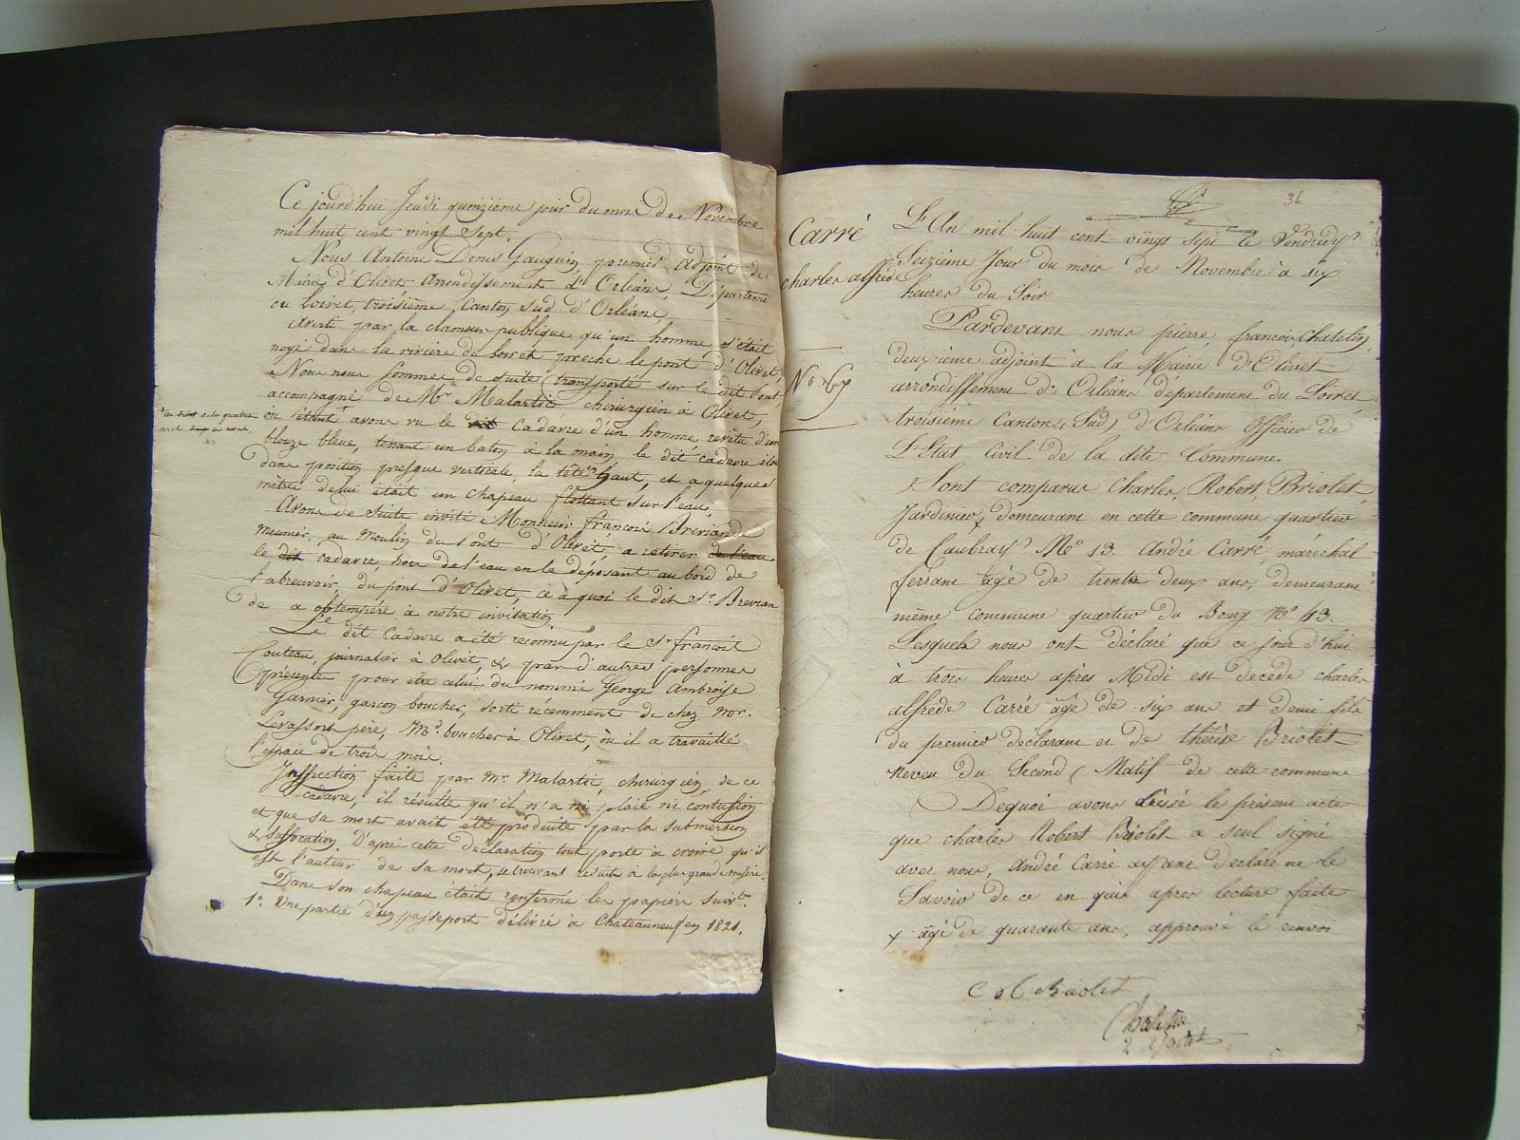 Ce jourd'hui Jeudi quinzième jour du mois de Novembre
mil huit cent vingt Sept.
Nous Antoine Denis Gauguin premier Adjoint de
Maire d'Olivet Arrondissement d'Orléans, Départem
du Loiret, troisième Canton Sud d'Orléans,
Averti par la clameur publique qu'un homme s'était
noyé dans la rivière du loiret proche le pont d'Olivet,
Nous nous sommes de suite transporté sur le dit Pont
accompagné de Mr Malartic chirurgien à Olivet,
où étant avons vu le dit Cadavre d'un homme revêtu d'un
blouze bleue, tenant un baton à la main, le dit cadavre
dans position presque verticale, la tête haut, et a quelques
mètres delui était un chapeau flottant sur l'eau,
Avons de Suite invité Monsieur françois
meunier au moulin du Pont d'Olivet, a retirer de l'eau
le dit cadavre, hors de l'eau en le déposant au bord de
l'abreuvoir, du pont d'Olivet, ce à quoi le dit Sr
de a obtempéré à notre invitation
Le dit Cadavre a été reconnu par le Sr françois
Couteau, journalier à Olivet, & par d'autres personnes
présente pour etre celui du nommé George Ambroise
Garnier, garçon boucher, sorti recemment de chez Mr.
Levassort père, Md. boucher à Olivet, où il a travaillé
l'espace de trois mois.
Inspection faite par Mr. Malartic, chirurgien, de ce
cadavre, il résulte qu'il n'a ni plaie ni contusion
et que sa mort avait été produite par la submersion
& suffocation. D'après cette declaration tout porte à croire qu'il
est l'auteur de sa mort, se trouvant réduit à la plus grande misère.
Dans son chapeau était renfermé les papiers suivts
1°. Une partie d'un passeport délivré à Chateauneuf en 1821.
36
Carré
charles alfrède
N° 67
L'An mil huit cent vingt sept le Vendredy
Seizième Jour du mois de Novembre à six
heures du Soir
Pardevant nous pierre françois Chatelin
deuxième adjoint à la Mairie d'Olivet
arrondissement d'Orléans département du Loiret
troisième Canton (Sud) d'Orléans Officier de
L'Etat Civil de la dite Commune.
Sont comparus Charles Robert Briolet
Jardinier x demeurant en cette commune quartier
de Caubray No 13. André Carré maréchal
ferrant âgé de trente deux ans, demeurant
même commune quartier du Bourg No 43.
Lesquels nous ont déclaré que ce jour d'hui
à trois heures après Midi est décédé charles
alfrède Carré âgé de six ans et demi fils
du premier déclarant et de thérèse Briolet
neveu du Second (Natif de cette commune
Dequoi avons dressé le présent acte
que charles Robert Briolet a seul signé
avec nous, André Carré ayant déclaré ne le
Savoir de ce en quis après lecture faite
x âgé de quarante ans, approuvé le renvoi
C R Briolet
Chatelin
2e Adjoint